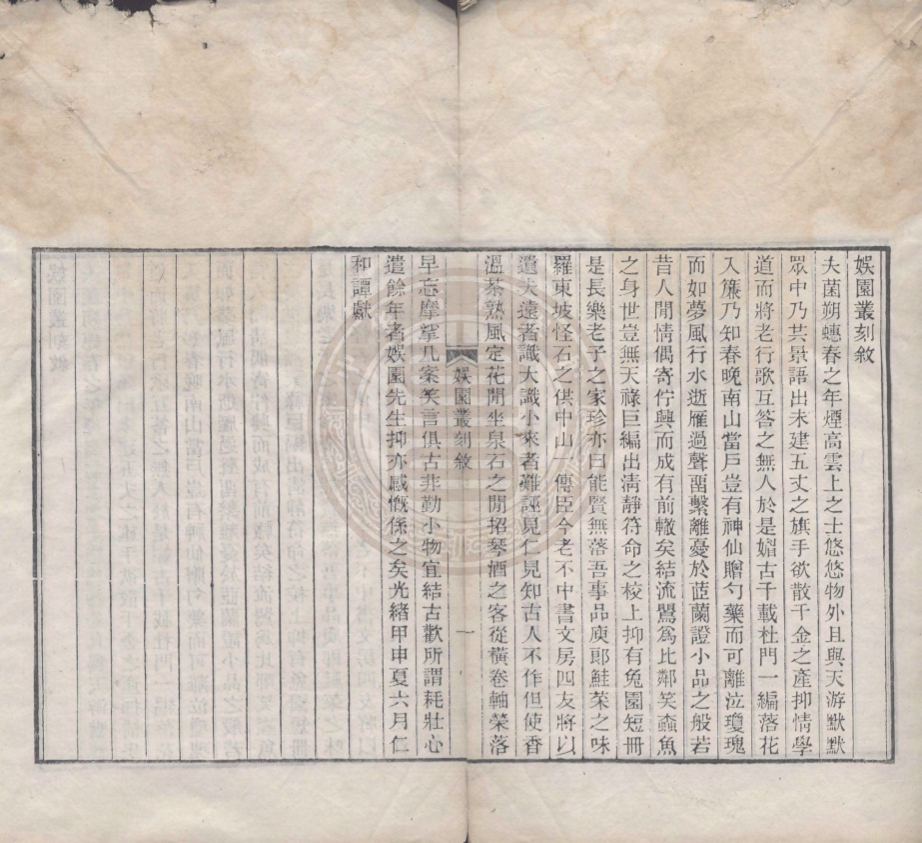 娛園叢刻敘
夫菌朔蟪春之年煙高雲上之士悠悠物外且與天游默默
眾中乃共景語出未建五丈之旗手欲散千金之產抑情學
道而將老行歌互答之無人於是媚古千載杜門一編落花
入簾乃知春晚南山當戶豈有神仙贈勺藥而可離泣瓊瑰
而如夢風行水逝雁過聲畱繫離憂於茝蘭證小品之般若
昔人閒情偶寄佇興而成有前轍矣結流鶯為比鄰笑蠹魚
之身世豈無天祿巨編出清靜符命之校上抑有兔園短冊
是長樂老子之家珍亦曰能賢無落吾事品庾郎鮭菜之味
羅東坡怪石之供中山一傳臣今老不中書文房四友將以
遺夫遠者識大識小來者難誣見仁見知古人不作但使香
溫茶熟風定花閒坐泉石之閒招琴酒之客從橫卷軸榮落
娛園叢刻敘
一
早忘摩挲几案笑言俱古非勤小物宜結古歡所謂耗壯心
遣餘年者娛園先生抑亦感慨係之矣光緒甲申夏六月仁
和譚獻